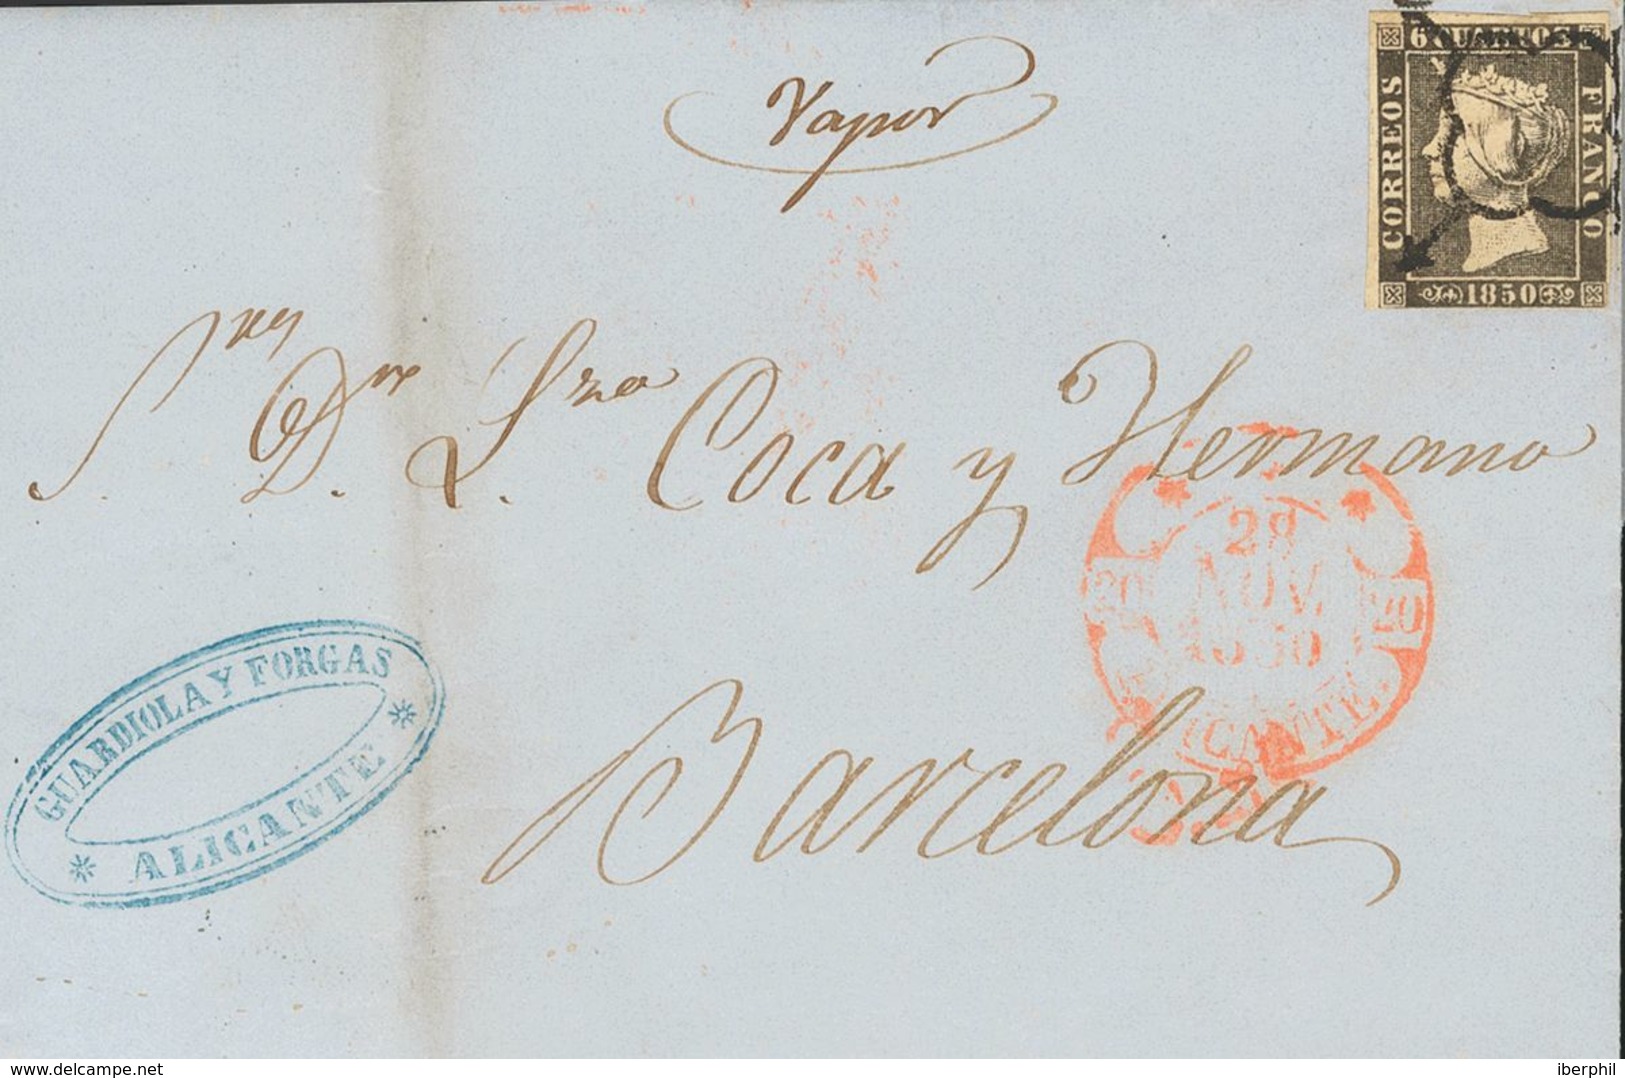 Vapor
6 CUARTOS
CORREOS
FRANCO
1850
Sres
Dn Lzo Coca y Hermano
28
NOV.
1850
ALICANTE.
Barcelona
GUARDIOLA Y FORGAS
ALICANTE
www.delcampe.net
iberphil